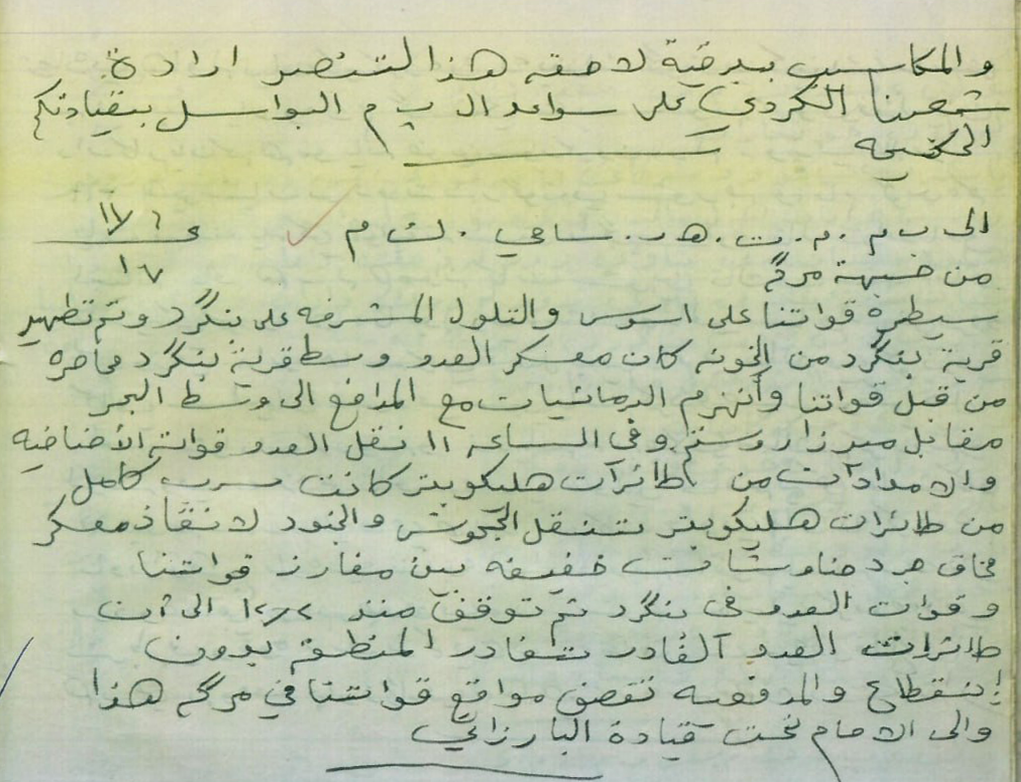 والمكاسب ببرقية لاحقه هذا لتنتصر ارادة
شعبنا الكردي على سواعد ال پ م البواسل بقيادتكم
الحكيمه
الى ب م . م . ت . هـ ر . سامي . ك م
١٧
من جبهة مرگه
سيطرة قواتنا على اسوس والتلول المشرفه على بنگرد وتم تطهير
قرية بنگرد من الخونه كان معسكر العدو وسط قرية بنگرد محاصره
من قبل قواتنا وأنهزم البرمائيات مع المدافع الى وسط البحر
مقابل ميرزا روستم وفي الساعه ١١ نقل العدو قواته الأضافيه
والامدادات من طائرآت هليكوبتر كانت سرب كامل
من طائرات هليكوبتر تنقل الجحوش والجنود لانقاذ معسكر
جرد مناوشات خفيفه بين مفارز قواتنا
وقوات العدو في بنگرد ثم توقف منذ الى آن
طائرات العدو آلغادر تغادر المنطقة بدون
إنقطاع والمدفعيه تقصف مواقع قواتنا في مرگه هذا
والى الامام تحت قيادة البارزاني